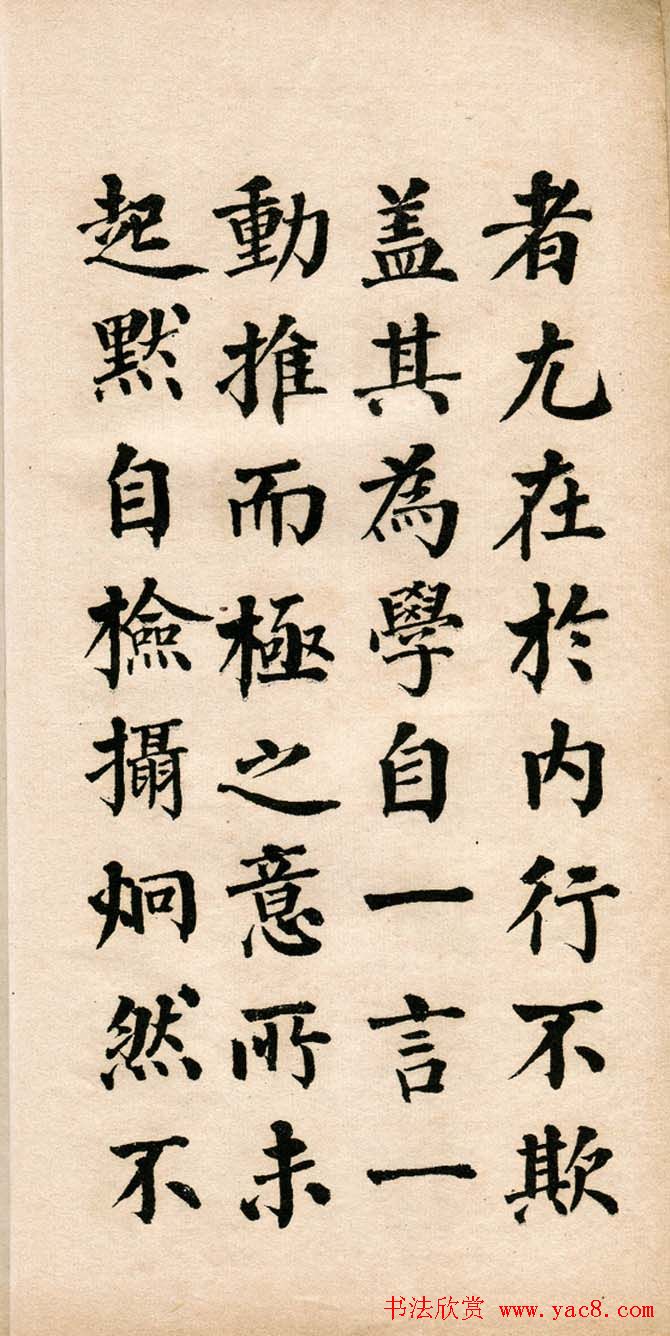 者尤在於内行不欺
盖其為學自一言一
動推而極之意所未
起默自檢攝炯然不
书法欣赏 www.yac8.com